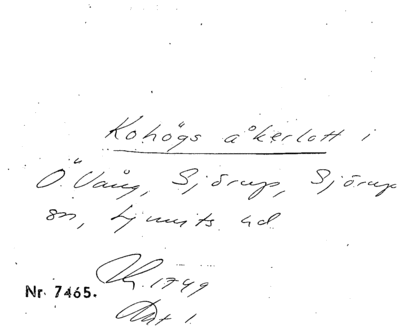 Kohögs åkerlott i
Ö. Vång, Sjörup, Sjörup
sn, Ljunits hd
1749
Nr. 7465.
Akt 1.